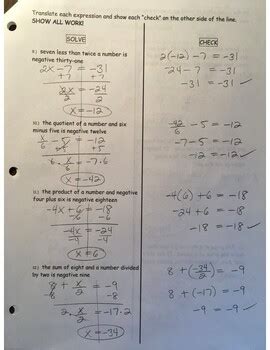 Translate each expression and show each "check" on the other side of the line.
SHOW ALL WORK!
SOLVE
CHECK
9.) seven less than twice a number is
negative thirty-one
2x - 7 = -31
+7 +7
2x/2 = -24/2
x = -12
2(-12) - 7 = -31
-24 - 7 = -31
-31 = -31 ✓
10.) the quotient of a number and six
minus five is negative twelve
x/6 - 5 = -12
+5 +5
6 · x/6 = -7 · 6
x = -42
-42/6 - 5 = -12
-7 - 5 = -12
-12 = -12 ✓
11.) the product of a number and negative
four plus six is negative eighteen
-4x + 6 = -18
-6 -6
-4x/-4 = -24/-4
x = 6
-4(6) + 6 = -18
-24 + 6 = -18
-18 = -18 ✓
12.) the sum of eight and a number divided
by two is negative nine
8 + x/2 = -9
-8 -8
2 · x/2 = -17 · 2
x = -34
8 + (-34/2) = -9
8 + (-17) = -9
-9 = -9 ✓